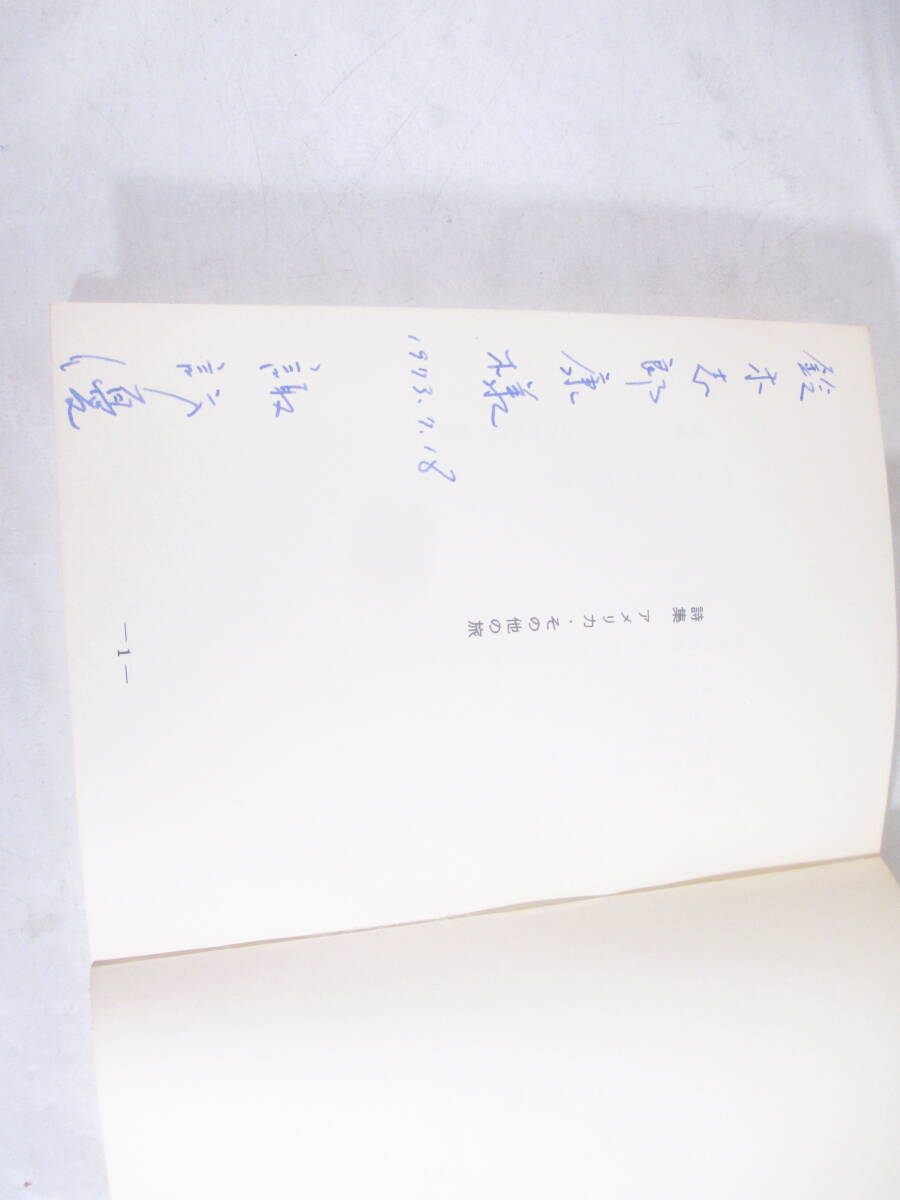 詩集 アメリカ・その他の旅
鈴木志郎康様
1973.7.18
諏訪優
— 1 —